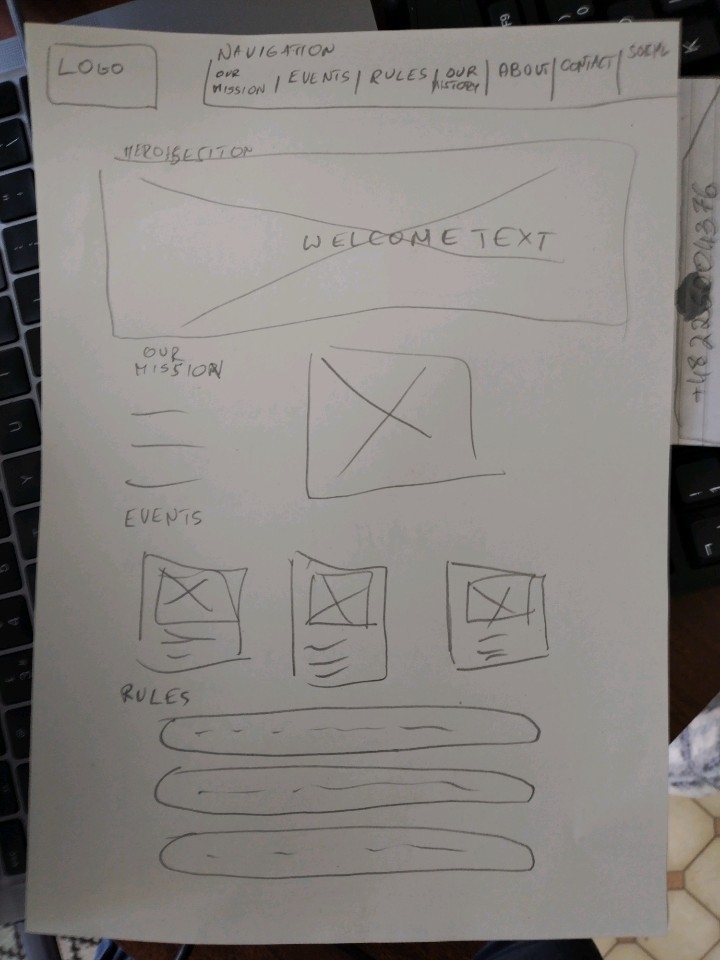 LOGO
NAVIGATION
OUR MISSION | EVENTS | RULES | OUR HISTORY | ABOUT | CONTACT | SOCIAL
WELCOME TEXT
OUR
MISSION
EVENTS
RULES